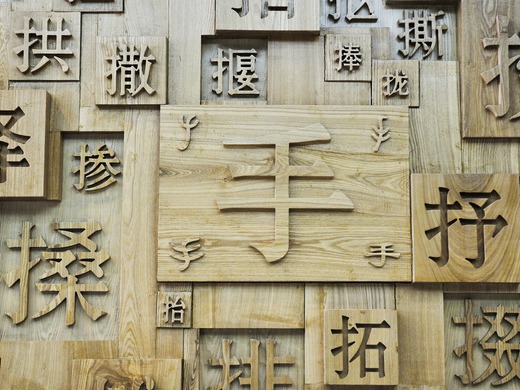 拱
撒
揠
捧
撕
拢
掺
手
手
抒
搡
抬
拓
排
掇